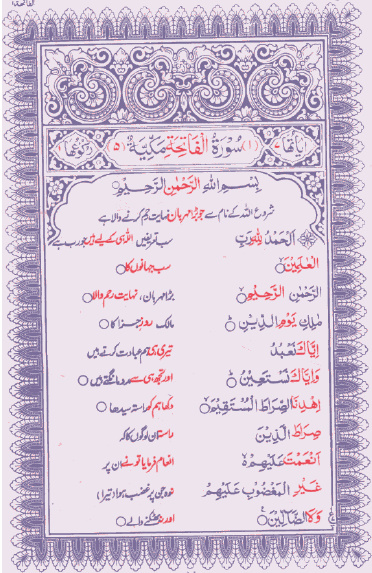 الفاتحة ١
اٰیاتھا ٧ (١) سُوْرَةُ الْفَاتِحَةِ مَكِّيَّةٌ (٥) رکوعھا ١
بِسْمِ اللّٰهِ الرَّحْمٰنِ الرَّحِيْمِ
شروع اللہ کے نام سے جو بڑا مہربان نہایت رحم کرنے والا ہے
اَلْحَمْدُ لِلّٰهِ رَبِّ سب تعریفیں اللہ ہی کے لیے ہیں جو رب ہے
الْعٰلَمِيْنَ سب جہانوں کا
الرَّحْمٰنِ الرَّحِيْمِ بڑا مہربان، نہایت رحم والا
مٰلِكِ يَوْمِ الدِّيْنِ ط مالک روزِ جزا کا
اِيَّاكَ نَعْبُدُ تیری ہی ہم عبادت کرتے ہیں
وَاِيَّاكَ نَسْتَعِيْنُ ط اور تجھ ہی سے مدد مانگتے ہیں
اِهْدِنَا الصِّرَاطَ الْمُسْتَقِيْمَ دکھا ہم کو راستہ سیدھا
صِرَاطَ الَّذِيْنَ راستہ ان لوگوں کا کہ
اَنْعَمْتَ عَلَيْهِمْ انعام فرمایا تو نے ان پر
غَيْرِ الْمَغْضُوْبِ عَلَيْهِمْ نہ وہ جن پر غضب ہوا (تیرا)
وَلَا الضَّآلِّيْنَ اور نہ بھٹکنے والے